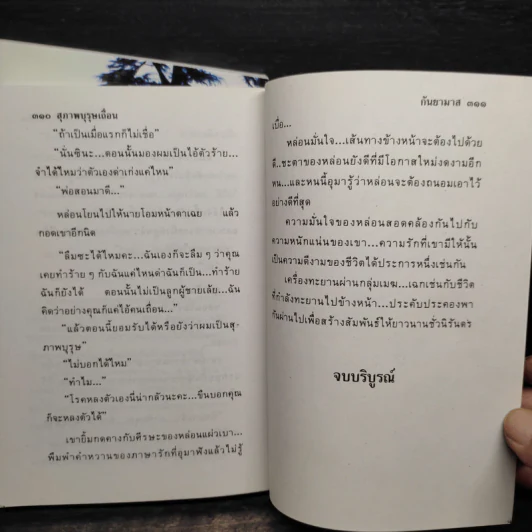 ๓๑๐ สุภาพบุรุษเถื่อน
“ถ้าเป็นเมื่อแรกก็ไม่เชื่อ”
“นั่นซินะ...ตอนนั้นมองผมเป็นไอ้ตัวร้าย...
จำได้ไหมว่าตัวเองด่าเก่งแค่ไหน”
“พ่อสอนมาดี...”
หล่อนโยนไปให้นายโอมหน้าตาเฉย แล้ว
กอดเขาอีกนิด
“ลืมซะได้ไหมคะ...ฉันเองก็จะลืม ๆ ว่าคุณ
เคยทำร้าย ๆ กับฉันแค่ไหนด่าฉันก็เป็น...ทำร้าย
ฉันก็ยังได้ ตอนนั้นไม่เป็นลูกผู้ชายเล้ย...ฉัน
คิดว่าอย่างคุณก็แค่ไอ้คนเถื่อน...”
“แล้วตอนนี้ยอมรับได้หรือยังว่าผมเป็นสุ-
ภาพบุรุษ”
“ไม่บอกได้ไหม”
“ทำไม...”
“โรคหลงตัวเองนี่น่ากลัวนะคะ...ขืนบอกคุณ
ก็จะหลงตัวได้”
เขายิ้มกดคางกับศีรษะของหล่อนแผ่วเบา...
พึมพำคำหวานของภาษารักที่อุมาฟังแล้วไม่รู้
กันยามาส ๓๑๑
เบื่อ...
หล่อนมั่นใจ...เส้นทางข้างหน้าจะต้องไปด้วย
ดี..ชะตาของหล่อนยังดีที่มีโอกาสใหม่งดงามอีก
หน...และหนนี้อุมารู้ว่าหล่อนจะต้องถนอมเอาไว้
อย่างดีที่สุด
ความมั่นใจของหล่อนสอดคล้องกันไปกับ
ความหนักแน่นของเขา...ความรักที่เขามีให้นั้น
เป็นความดีงามของชีวิตได้ประการหนึ่งเช่นกัน
เครื่องทะยานผ่านกลุ่มเมฆ...เฉกเช่นกับชีวิต
ที่กำลังทะยานไปข้างหน้า...ประคับประคองพา
กันผ่านไปเพื่อสร้างสัมพันธ์ให้ยาวนานชั่วนิรันดร
จบบริบูรณ์